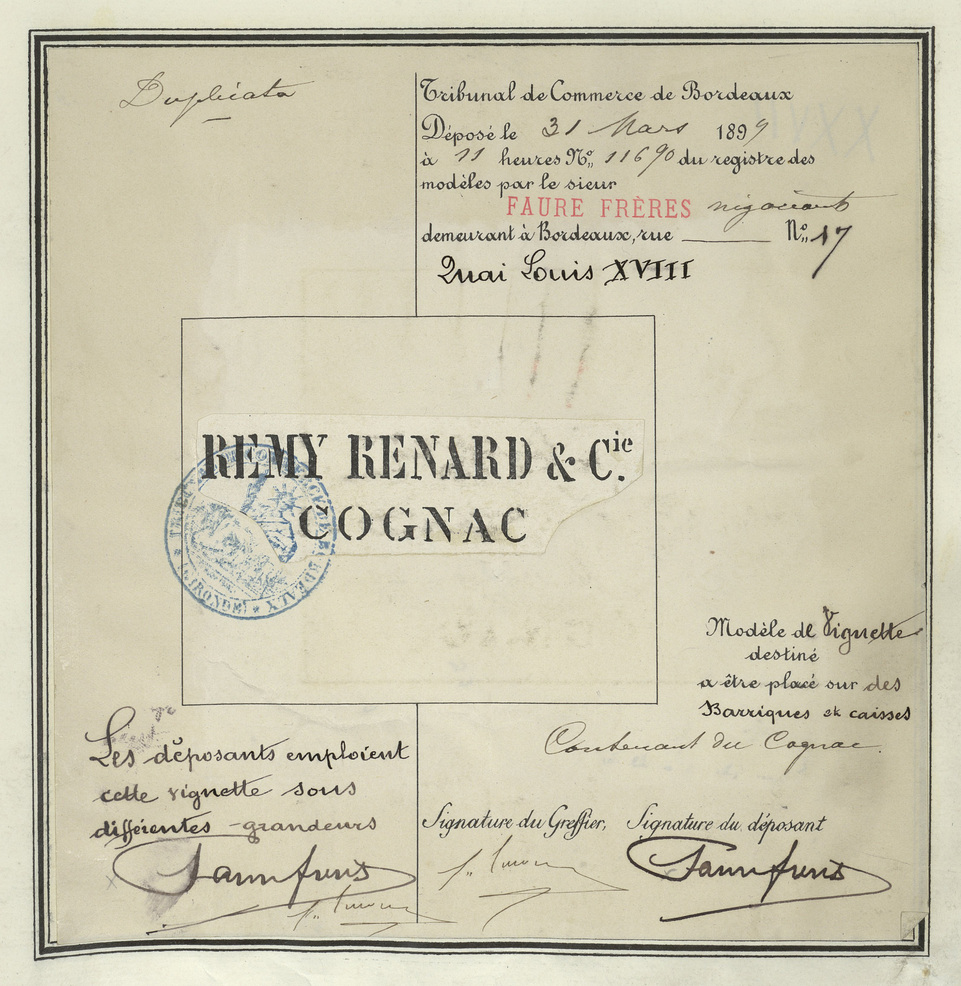 Duplicata
Tribunal de Commerce de Bordeaux
Déposé le 31 Mars 1899
à 11 heures No. 11690 du registre des
modèles par le sieur
FAURE FRÈRES négociants
demeurant à Bordeaux, rue ——— No. 17
Quai Louis XVIII
REMY RENARD & Cie.
COGNAC
TRIBUNAL DE COMMERCE DE BORDEAUX
(GIRONDE)
Modèle de Vignette
destiné
a être placé sur des
Barriques et caisses
Contenant du Cognac.
Les déposants emploient
cette vignette sous
différentes grandeurs
Signature du Greffier, Signature du déposant
Faure frères
Faure frères